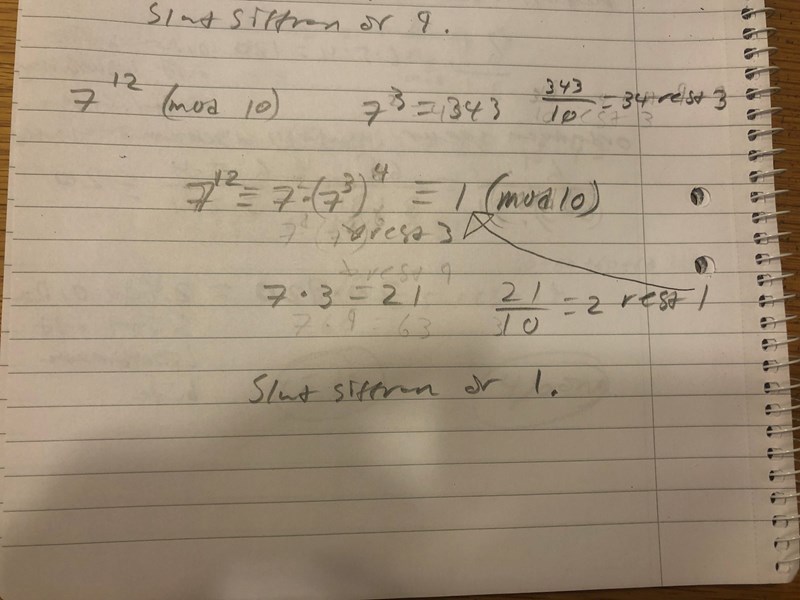 Slut siffran är 9.
7^12 (mod 10) 7^3 = 343 343/10 = 34 rest 3
7^12 = 7·(7^3)^4 ≡ 1 (mod 10)
rest 3
7 · 3 = 21 21/10 = 2 rest 1
Slut siffran är 1.